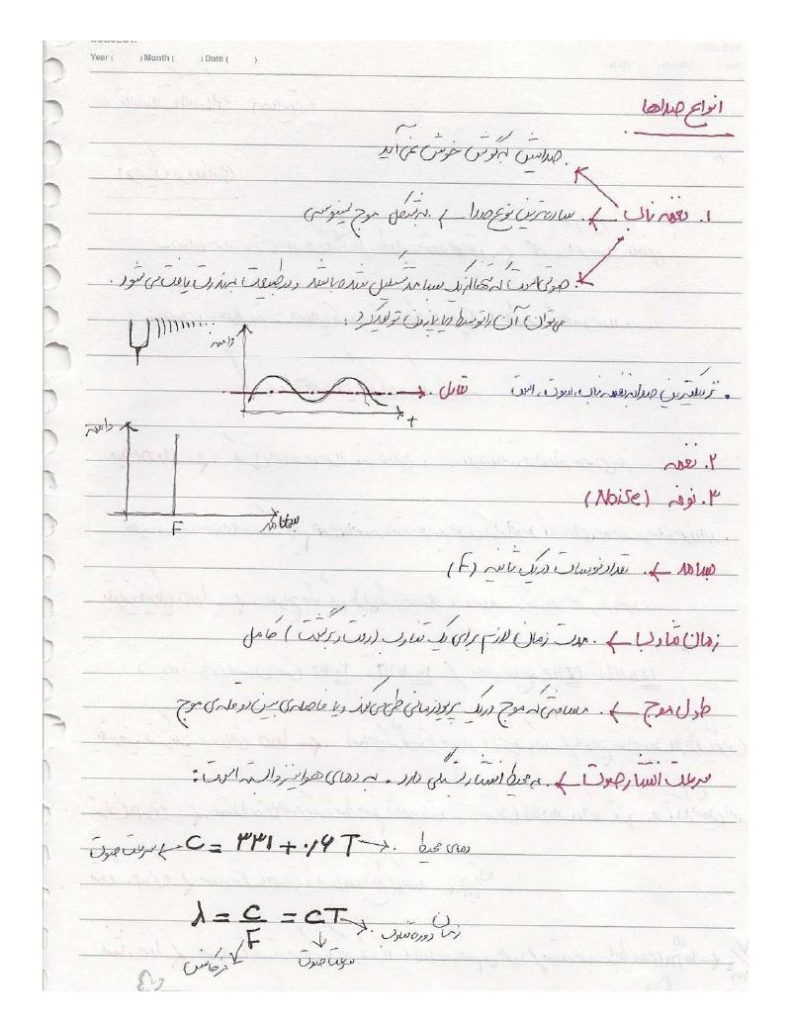 Year ( ) Month ( ) Date ( )
انواع صداها
صدایش به گوش خوش نمی آید.
۱. نغمه ناب ← ساده ترین نوع صدا ← به شکل موج سینوسی
صوتی است که تنها از یک بسامد تشکیل شده باشد و در طبیعت به ندرت یافت می شود.
می توان آن را توسط دیاپازن تولید کرد.
دامنه
t
• نزدیکترین صدا به نغمه ناب، سوت، است
دامنه
F
بسامد
۲. نغمه
۳. نوفه (Noise)
بسامد ← تعداد نوسانات در یک ثانیه (F)
زمان تناوب ← مدت زمان لازم برای یک تناوب (رفت و برگشت) کامل
طول موج ← مسافتی که موج در یک پریود زمانی طی می کند و یا فاصله ی بین دو قله ی موج
سرعت انتشار صوت ← به محیط انتشار بستگی دارد. به دمای هوا نیز وابسته است:
سرعت صوت ← C = ۳۳۱ + ۰/۶ T → دمای محیط
λ = C/F = CT → زمان دوره تناوب
سرعت صوت
فرکانس